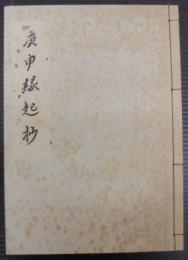 庚申縁起抄